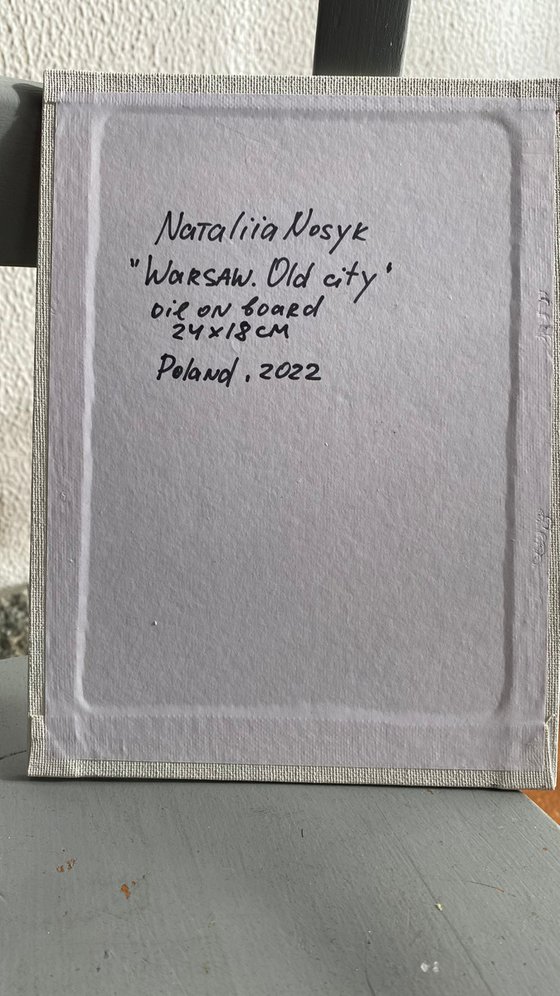 Nataliia Nosyk
"Warsaw. Old city'
oil on board
24x18cm
Poland, 2022